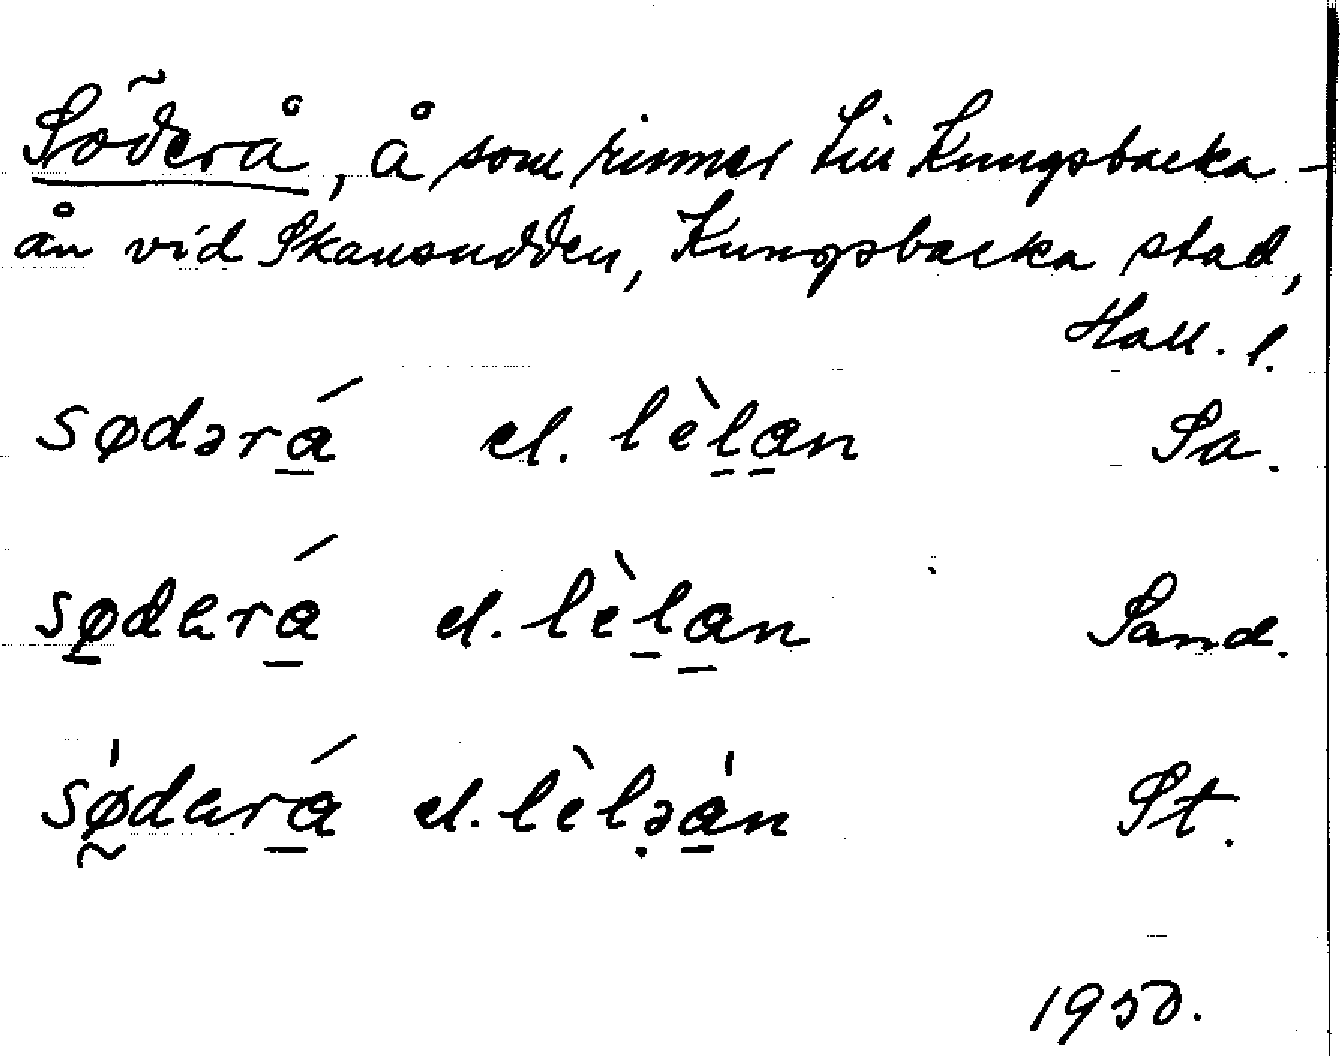 Söderå, å som rinner till Kungsbacka-
ån vid Skansudden, Kungsbacka stad,
Hall. l.
sødərá̱ el. lèḻa̱n Sa.
sø̱dɐrá̱ el. lèḻa̱n Sand.
sø̰̍dɐrá̱ el. lèlə̣a̱̍n St.
1950.